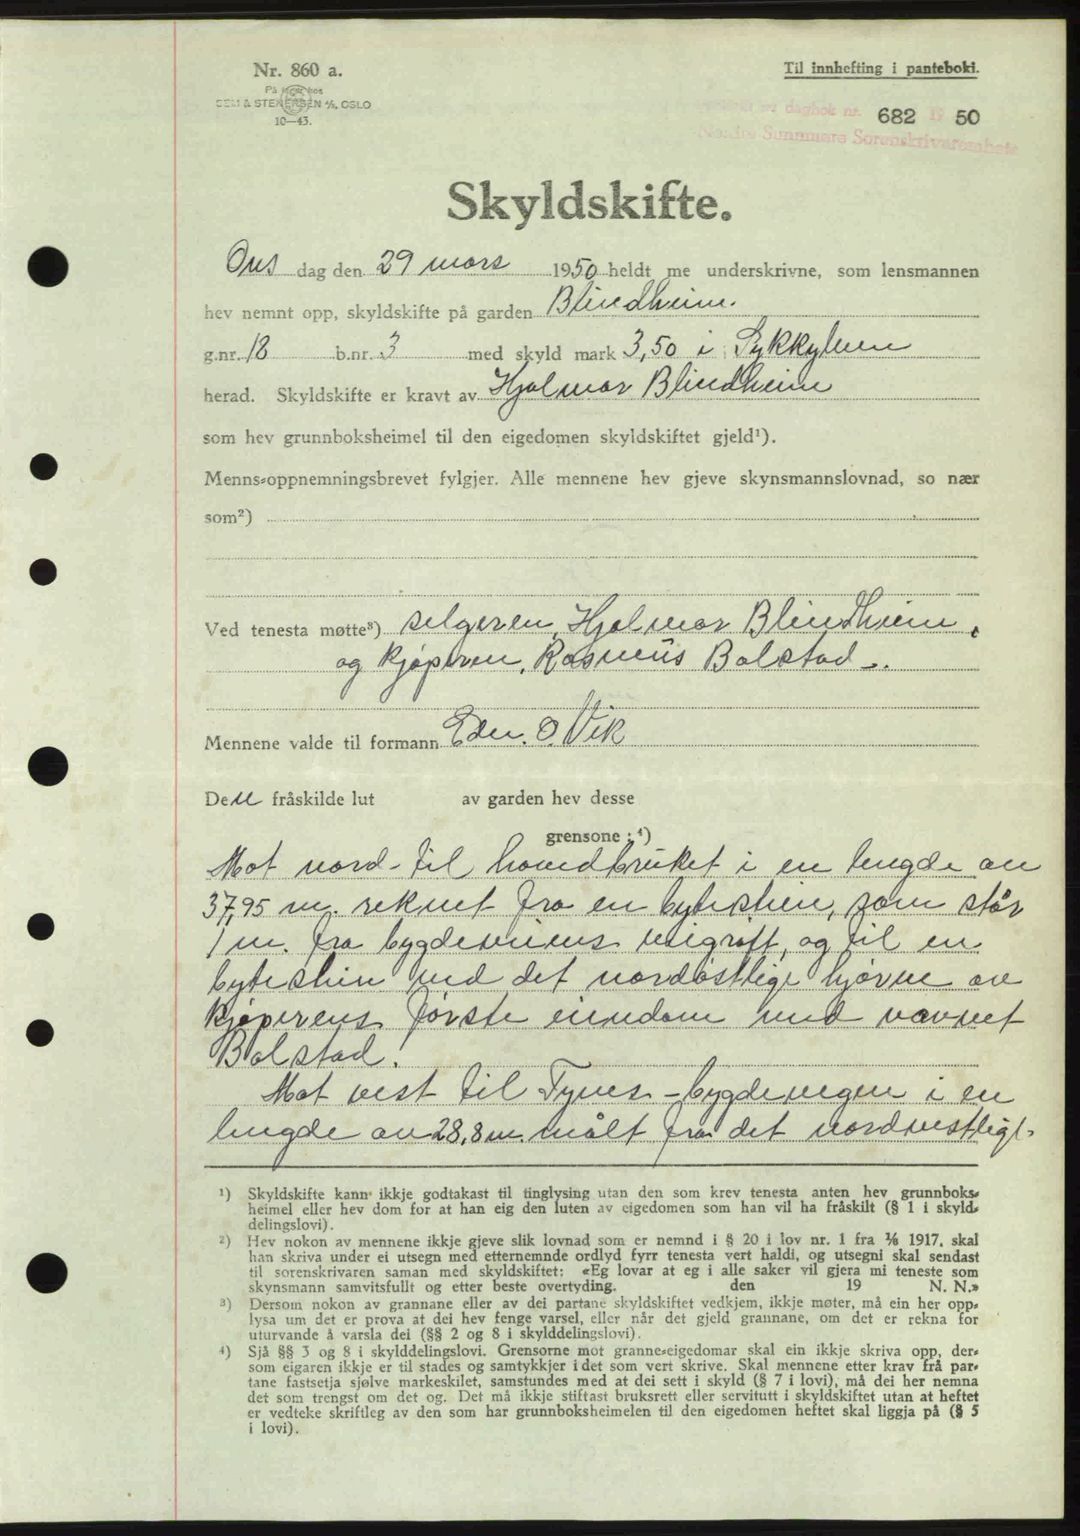 Nr. 860 a.
På lager hos
SEM & STENERSEN A/S, OSLO
10—43.
Til innhefting i panteboki.
dagbok nr. 682 19 50
Nordre Sunnmøre Sorenskrivarembete
Skyldskifte.
Ons dag den 29 mars 1950 heldt me underskrivne, som lensmannen
hev nemnt opp, skyldskifte på garden Blindheim.
g.nr. 18 b.nr. 3 med skyld mark 3,50 i Sykkylven
herad. Skyldskifte er kravt av Hjalmar Blindheim
som hev grunnboksheimel til den eigedomen skyldskiftet gjeld¹).
Menns-oppnemningsbrevet fylgjer. Alle mennene hev gjeve skynsmannslovnad, so nær
som²)
Ved tenesta møtte³) selgeren, Hjalmar Blindheim,
og kjøperen, Rasmus Bolstad.
Mennene valde til formann Edv. O. Vik
Den fråskilde lut av garden hev desse
grensone: ⁴)
Mot nord til hovedbruket i en lengde av
37,95 m. reknet fra en bytestein, som står
1 m. fra bygdeveiens veigrøft, og til en
bytestein ved det nordøstlige hjørne av
kjøperens første eiendom med navnet
Bolstad.
Mot vest til Tynes-bygdevegen i en
lengde av 28,8 m. målt fra det nordvestlige
¹) Skyldskifte kann ikkje godtakast til tinglysing utan den som krev tenesta anten hev grunnboks-
heimel eller hev dom for at han eig den luten av eigedomen som han vil ha fråskilt (§ 1 i skyld-
delingslovi).
²) Hev nokon av mennene ikkje gjeve slik lovnad som er nemnd i § 20 i lov nr. 1 fra 1/6 1917, skal
han skriva under ei utsegn med etternemnde ordlyd fyrr tenesta vert haldi, og utsegni skal sendast
til sorenskrivaren saman med skyldskiftet: «Eg lovar at eg i alle saker vil gjera mi teneste som
skynsmann samvitsfullt og etter beste overtyding. den 19 N. N.»
³) Dersom nokon av grannane eller av dei partane skyldskiftet vedkjem, ikkje møter, må ein her opp-
lysa um det er prova at dei hev fenge varsel, eller når det gjeld grannane, om det er rekna for
uturvande å varsla dei (§§ 2 og 8 i skylddelingslovi).
⁴) Sjå §§ 3 og 8 i skylddelingslovi. Grensorne mot granne-eigedomar skal ein ikkje skriva opp, der-
som eigaren ikkje er til stades og samtykkjer i det som vert skrive. Skal mennene etter krav frå par-
tane fastsetja sjølve markeskilet, samstundes med at dei sett i skyld (§ 7 i lovi), må dei her nemna
det som trengst om det og. Det må ikkje stiftast bruksrett eller servitutt i skyldskiftet utan at heftet
er vedteke skriftleg av den som har grunnboksheimelen til den eigedomen heftet skal liggja på (§ 5
i lovi).